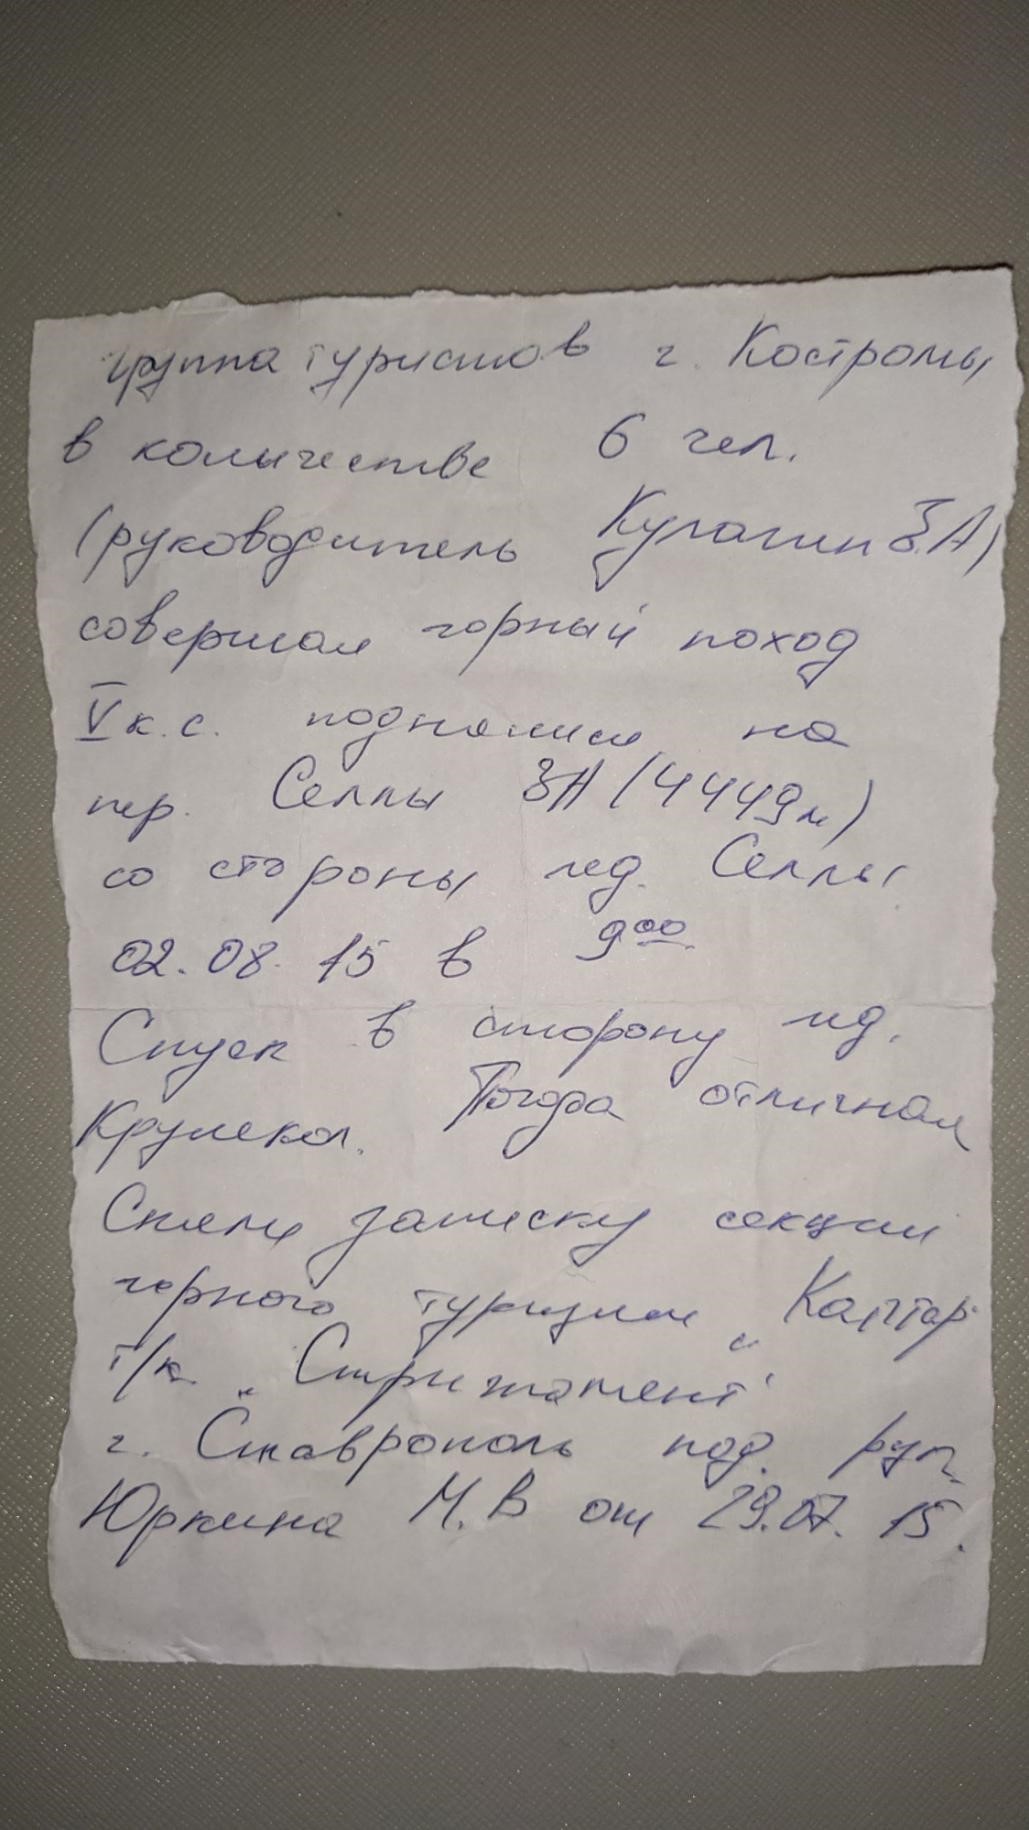 группа туристов г. Костромы
в количестве 6 чел.
(руководитель Кулагин З.А)
совершая горный поход
V к.с. поднялись на
пер. Селлы 3А (4449м)
со стороны лед. Селлы
02.08.15 в 9⁰⁰
Спуск в сторону лд.
Крумкол. Погода отличная
Сняли записку секции
горного туризма „Каптар"
т/к. „Стрижамент"
г. Ставрополь под рук.
Юркина М.В от 29.07.15.